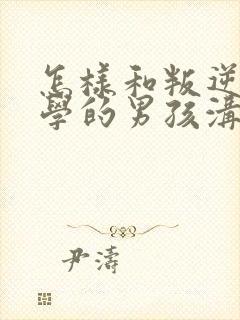 怎樣和叛逆
學的男孩溝
尹濤